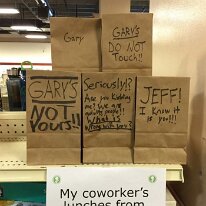 Gary
GARY'S
DO NOT
TOUCH!!
GARY'S
NOT
YOURS!!
Seriously!?
Are you kidding
me? We are
What is
Wrong with you?
JEFF!
I Know it
is you!!!
My coworker's
lunches from